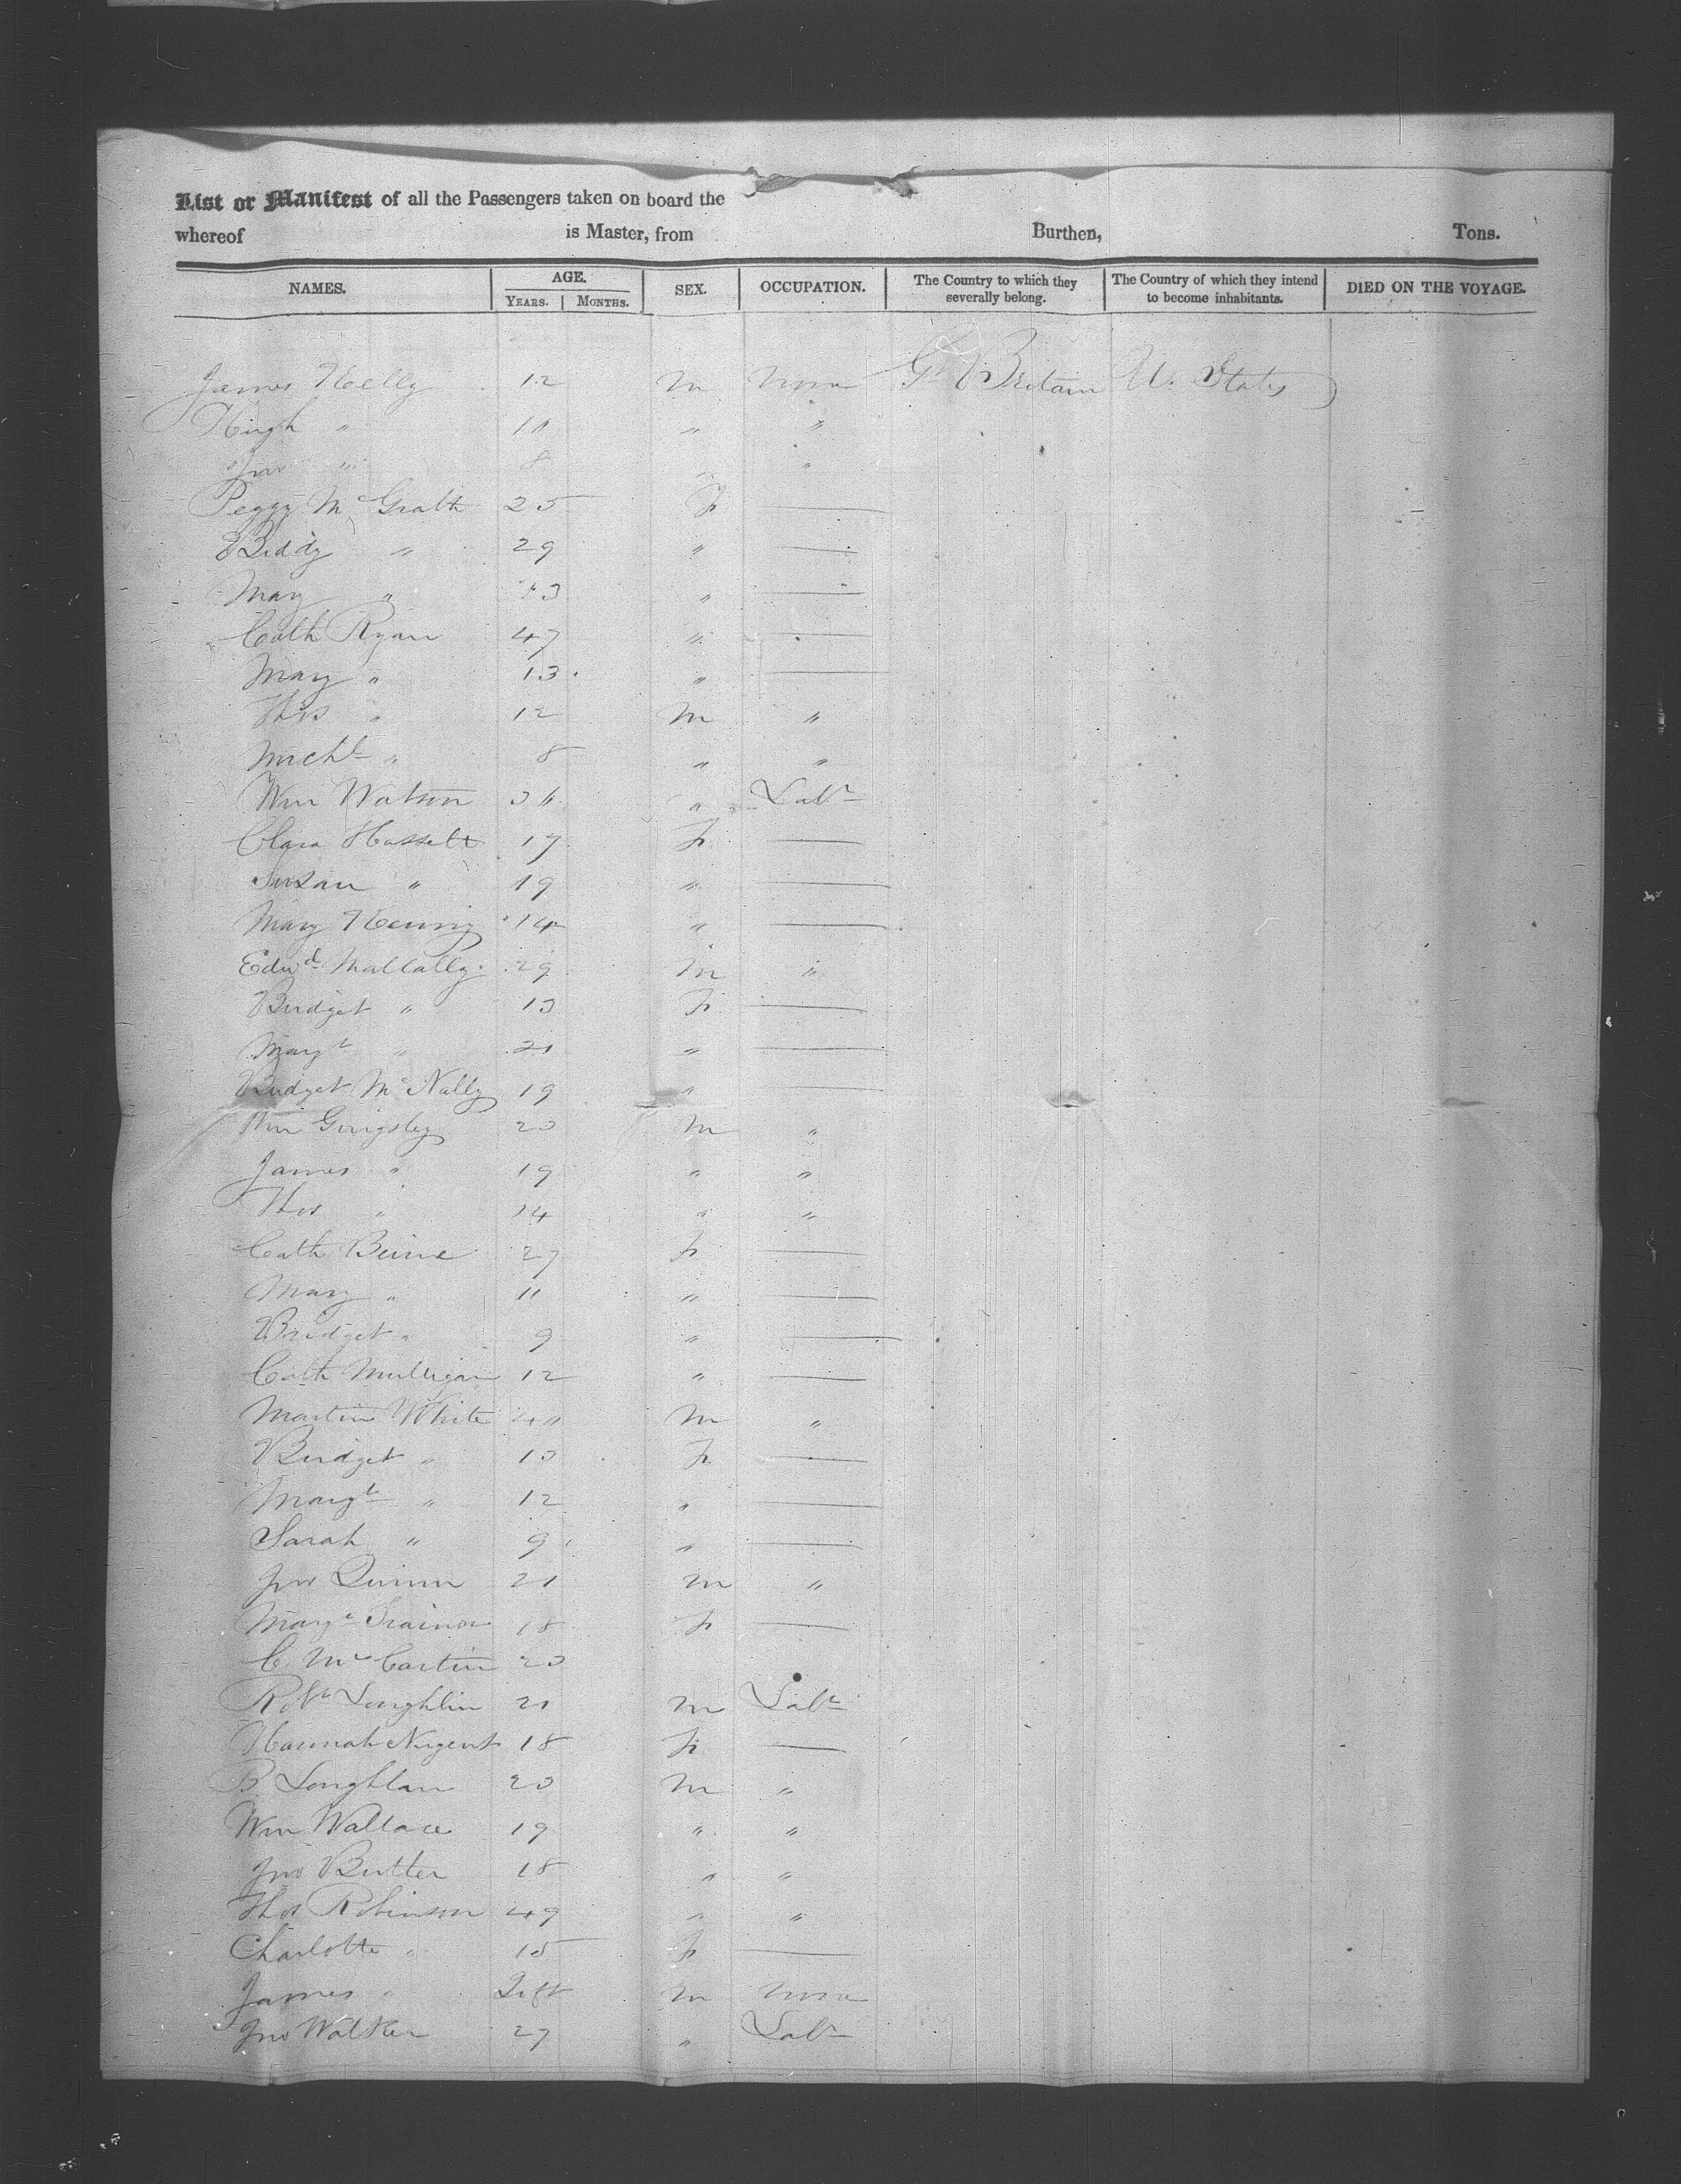 List or Manifest of all the Passengers taken on board the
whereof is Master, from Burthen, Tons.
NAMES. AGE. SEX. OCCUPATION. The Country to which they severally belong. The Country of which they intend to become inhabitants. DIED ON THE VOYAGE.
YEARS. MONTHS.
James Kelly 12 M None Gt Britain U. States
Hugh " 11 " "
Jno " 8 " "
Peggy McGrath 25 F —
Biddy " 29 " —
Mary " 13 " —
Cath Ryan 47 " —
Mary " 13 " —
Thos " 12 M "
Michl " 8 " "
Wm Watson " Labr
Clara Hassett 17 F —
Susan " 19 " —
Mary 14 " —
Edwd Mallally 29 M "
Bridget " 13 F —
Margt " 21 " —
Bridget McNally 19 " —
Wm Grigsley 20 M "
James " 19 " "
Thos " 14 " "
Cath Beirne 27 F —
Mary " 11 " —
Bridget " 9 " —
Cath Mulligan 12 " —
Martin White 40 M "
Bridget " 13 F —
Margt " 12 " —
Sarah " 9 " —
Jno Quinn 21 M "
Margt Trainor 18 F —
C McCartin 20
Robt Loughlin 21 M Labr
Hannah Nugent 18 F —
B Loughlan 20 M "
Wm Wallace 19 " "
Jno Butler 18 " "
Thos Robinson 49 " "
Charlotte " 15 F —
James " Inft M None
Jno Walker 27 " Labr